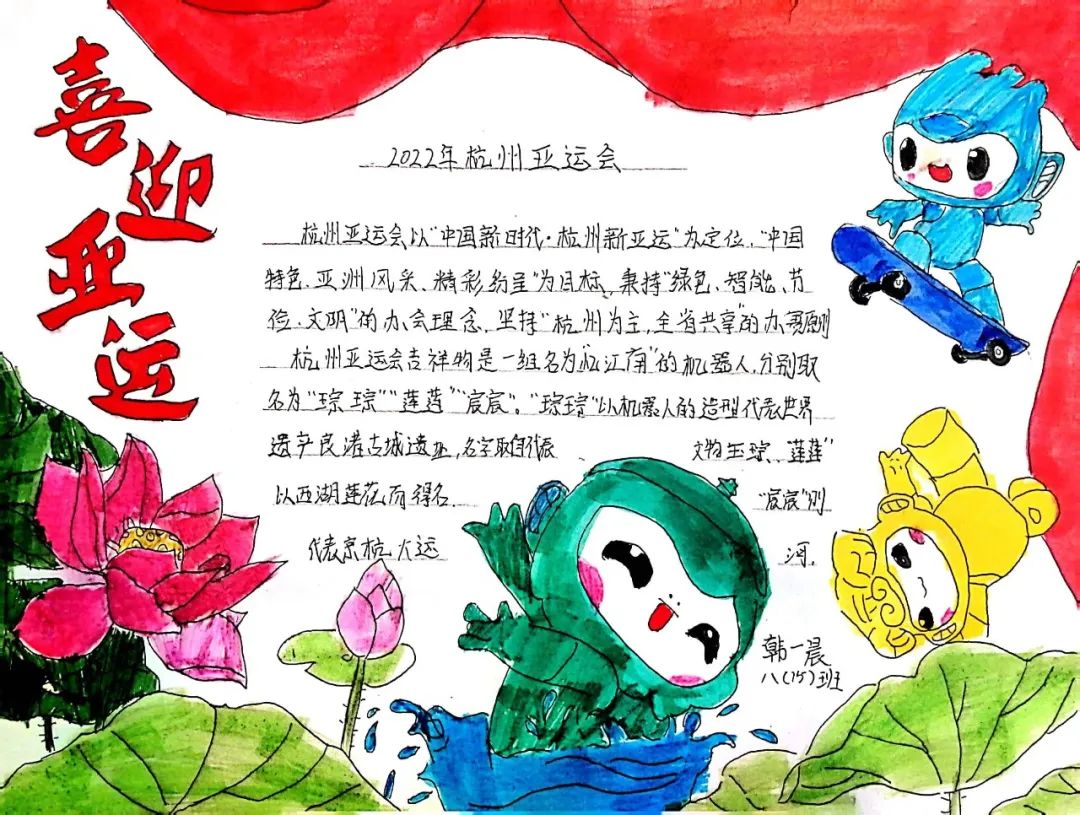 喜迎亚运
2022年杭州亚运会
杭州亚运会以"中国新时代·杭州新亚运"为定位,"中国
特色、亚洲风采、精彩纷呈"为目标,秉持"绿色、智能、节
俭、文明"的办会理念,坚持"杭州为主,全省共享"的办赛原则
杭州亚运会吉祥物是一组名为"忆江南"的机器人,分别取
名为"琮琮""莲莲""宸宸"。"琮琮"以机器人的造型代表世界
遗产良渚古城遗址,名字取自代表 文物玉琮、莲莲"
以西湖莲花而得名 "宸宸"则
代表京杭大运 河。
韩一晨
八(15)班